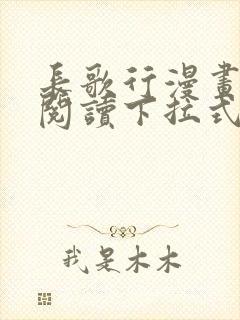 長歌行漫畫
閱讀下拉式
我是木木